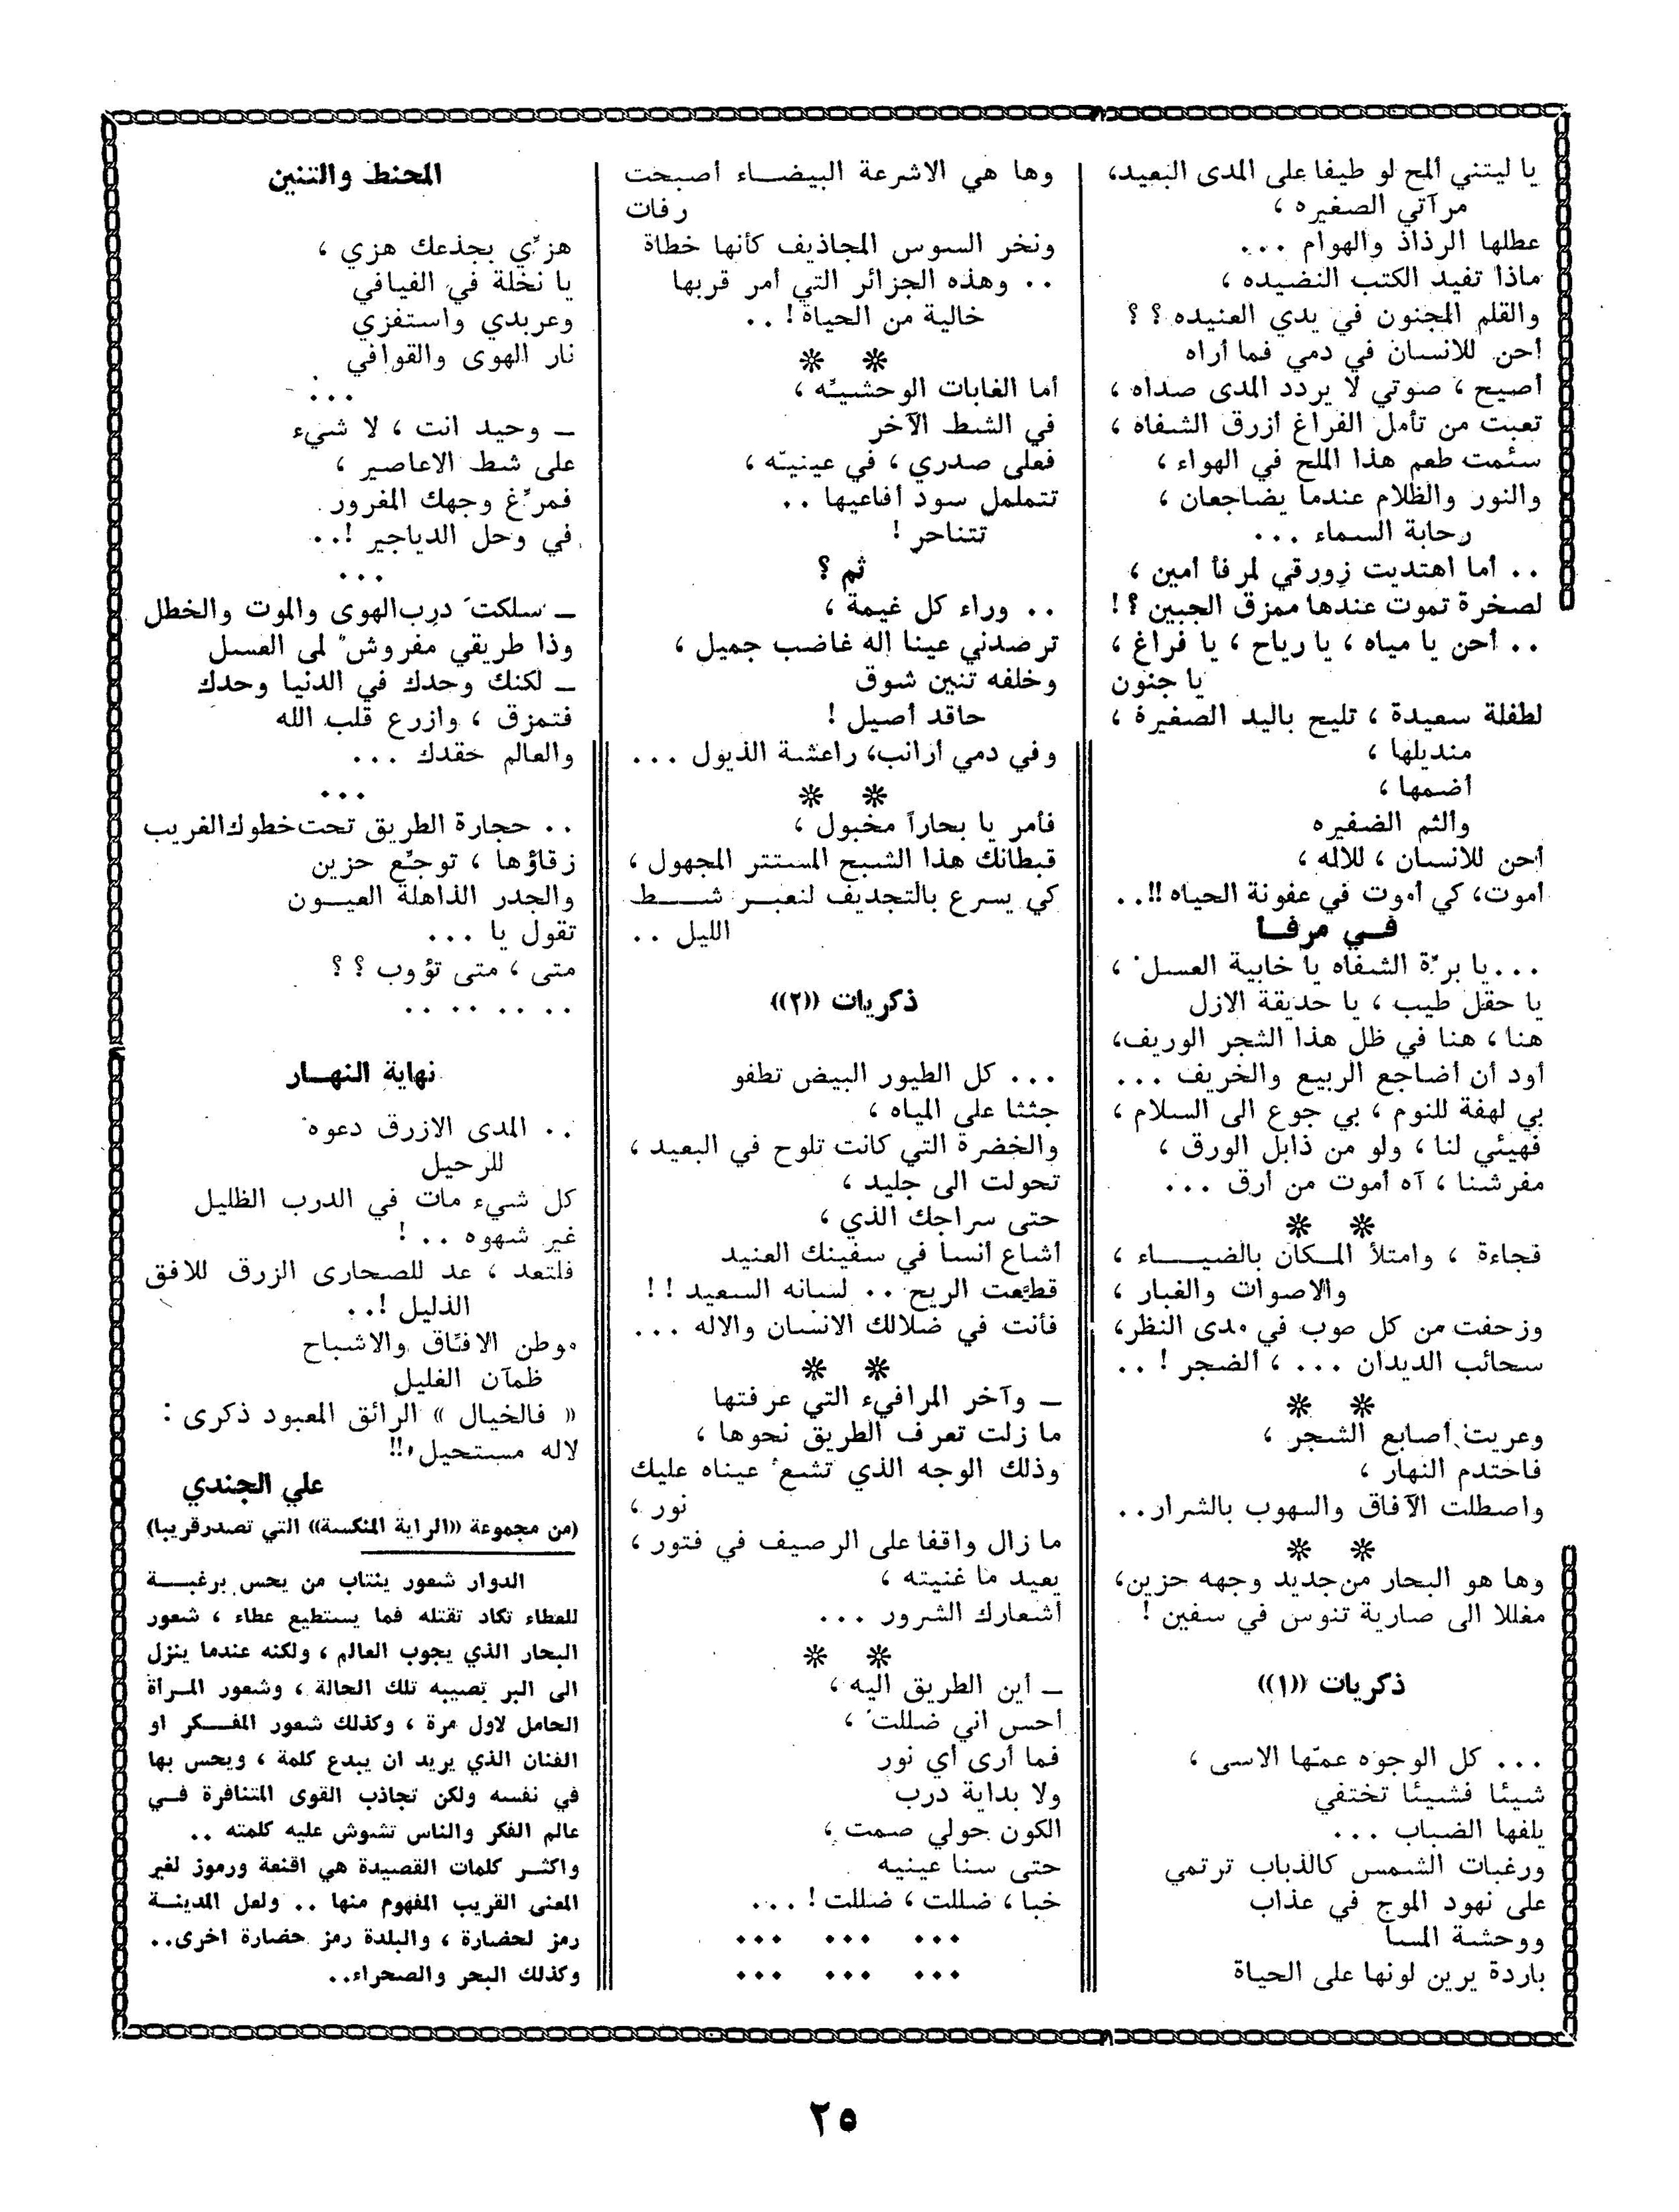 يا ليتني ألمح لو طيفا على المدى البعيد،
مرآتي الصغيره ،
عطلها الرذاذ والهوام ...
ماذا تفيد الكتب النضيده ،
والقلم المجنون في يدي العنيده ؟ ؟
أحن للانسان في دمي فما أراه
أصيح ، صوتي لا يردد المدى صداه ،
تعبت من تأمل الفراغ أزرق الشفاه ،
سئمت طعم هذا الملح في الهواء ،
والنور والظلام عندما يضاجعان ،
رحابة السماء ...
.. أما اهتديت زورقي لمرفأ أمين ،
لصخرة تموت عندها ممزق الجبين ؟!
.. أحن يا مياه ، يا رياح ، يا فراغ ،
يا جنون
لطفلة سعيدة ، تليح باليد الصغيرة ،
منديلها ،
أضمها ،
وألثم الضفيره
أحن للانسان ، للاله ،
أموت، كي أموت في عفونة الحياه !!..
فـي مرفـأ
...يا برّة الشفاه يا خابية العسل ،
يا حقل طيب ، يا حديقة الازل
هنا ، هنا في ظل هذا الشجر الوريف،
أود أن أضاجع الربيع والخريف ...
بي لهفة للنوم ، بي جوع الى السلام ،
فهيئي لنا ، ولو من ذابل الورق ،
مفرشنا ، آه أموت من أرق ...
❊ ❊
فجاءة ، وامتلأ المـكان بالضيـــاء ،
والاصوات والغبار ،
وزحفت من كل صوب في مدى النظر،
سحائب الديدان ... ، ألضجر ! ..
❊ ❊
وعريت أصابع الشجر ،
فاحتدم النهار ،
واصطلت الآفاق والسهوب بالشرار..
❊ ❊
وها هو البحار من جديد وجهه حزين،
مغللا الى صارية تنوس في سفين !
ذكريات ((١))
... كل الوجوه عمتّها الاسى ،
شيئا فشيئا تختفي
يلفها الضباب ...
ورغبات الشمس كالذباب ترتمي
على نهود الموج في عذاب
ووحشة المسا
باردة يرين لونها على الحياة
وها هي الاشرعة البيضـــاء أصبحت
رفات
ونخر السوس المجاذيف كأنها خطاة
.. وهذه الجزائر التي أمر قربها
خالية من الحياة ! ..
❊ ❊
أما الغابات الوحشيّه ،
في الشط الآخر
فعلى صدري ، في عينيّه ،
تتململ سود أفاعيها ..
تتناحر !
ثم ؟
.. وراء كل غيمة ،
ترصدني عينا إله غاضب جميل ،
وخلفه تنين شوق
حاقد أصيل !
وفي دمي أرانب، راعشة الذيول ...
❊ ❊
فأمر يا بحاراً مخبول ،
قبطانك هذا الشبح المستتر المجهول ،
كي يسرع بالتجديف لنعبـــر شـــط
الليل ..
ذكريات ((٢))
... كل الطيور البيض تطفو
جثثا على المياه ،
والخضرة التي كانت تلوح في البعيد ،
تحولت الى جليد ،
حتى سراجك الذي ،
أشاع أنسا في سفينك العنيد
قطّعت الريح .. لسانه السعيد ! !
فأنت في ضلالك الانسان والاله ...
❊ ❊
ــ وآخر المرافيء التي عرفتها
ما زلت تعرف الطريق نحوها ،
وذلك الوجه الذي تشعُ عيناه عليك
نور ،
ما زال واقفا على الرصيف في فتور ،
يعيد ما غنيته ،
أشعارك الشرور ...
❊ ❊
ــ أين الطريق اليه ،
أحس اني ضللت ،
فما أرى أي نور
ولا بداية درب
الكون حولي صمت ،
حتى سنا عينيه
خبا ، ضللت ، ضللت ! ...
... ... ...
... ... ...
المحنط والتنين
هزّي بجذعك هزي ،
يا نخلة في الفيافي
وعربدي واستفزي
نار الهوى والقوافي
...
ــ وحيد انت ، لا شيء
على شط الاعاصير ،
فمرّغ وجهك المغرور
في وحل الدياجير !..
...
ــ سلكتَ درب الهوى والموت والخطل
وذا طريقي مفروش لمى العسل
ــ لكنك وحدك في الدنيا وحدك
فتمزق ، وازرع قلب الله
والعالم حقدك ...
...
.. حجارة الطريق تحت خطوك الغريب
زقاؤها ، توجّع حزين
والجدر الذاهلة العيـــون
تقول يا ...
متى ، متى تؤوب ؟ ؟
.. .. .. ..
نهاية النهـــار
.. المدى الازرق دعوه
للرحيل
كل شيء مات في الدرب الظليل
غير شهوه .. !
فلتعد ، عد للصحارى الزرق للافق
الذليل !..
موطن الافّاق والاشباح
ظمآن الغليل
« فالخيال » الرائق المعبود ذكرى :
لاله مستحيل !!
علي الجندي
(من مجموعة ((الراية المنكسة)) التي تصدر قريبا)
الدوار شعور ينتاب من يحس برغبـــة
للعطاء تكاد تقتله فما يستطيع عطاء ، شعور
البحار الذي يجوب العالم ، ولكنه عندما ينزل
الى البر تصيبه تلك الحالة ، وشعور المـرأة
الحامل لاول مرة ، وكذلك شعور المفـــكر او
الفنان الذي يريد ان يبدع كلمة ، ويحس بها
في نفسه ولكن تجاذب القوى المتنافرة فـــي
عالم الفكر والناس تشوش عليه كلمته ..
واكثـر كلمات القصيدة هي اقنعة ورموز لغير
المعنى القريب المفهوم منها .. ولعل المدينـــة
رمز لحضارة ، والبلدة رمز حضارة اخرى..
وكذلك البحر والصحراء..
٢٥